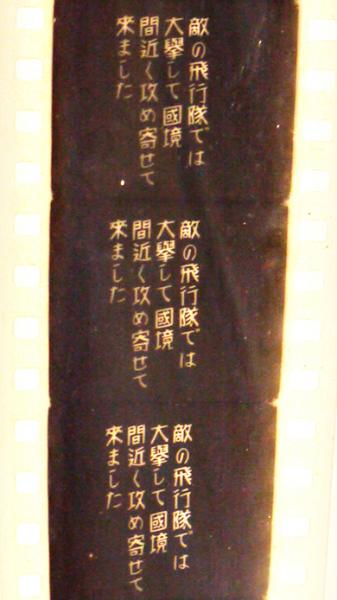 敵の飛行隊では
大擧して國境
間近く攻め寄せて
來ました
敵の飛行隊では
大擧して國境
間近く攻め寄せて
來ました
敵の飛行隊では
大擧して國境
間近く攻め寄せて
來ました